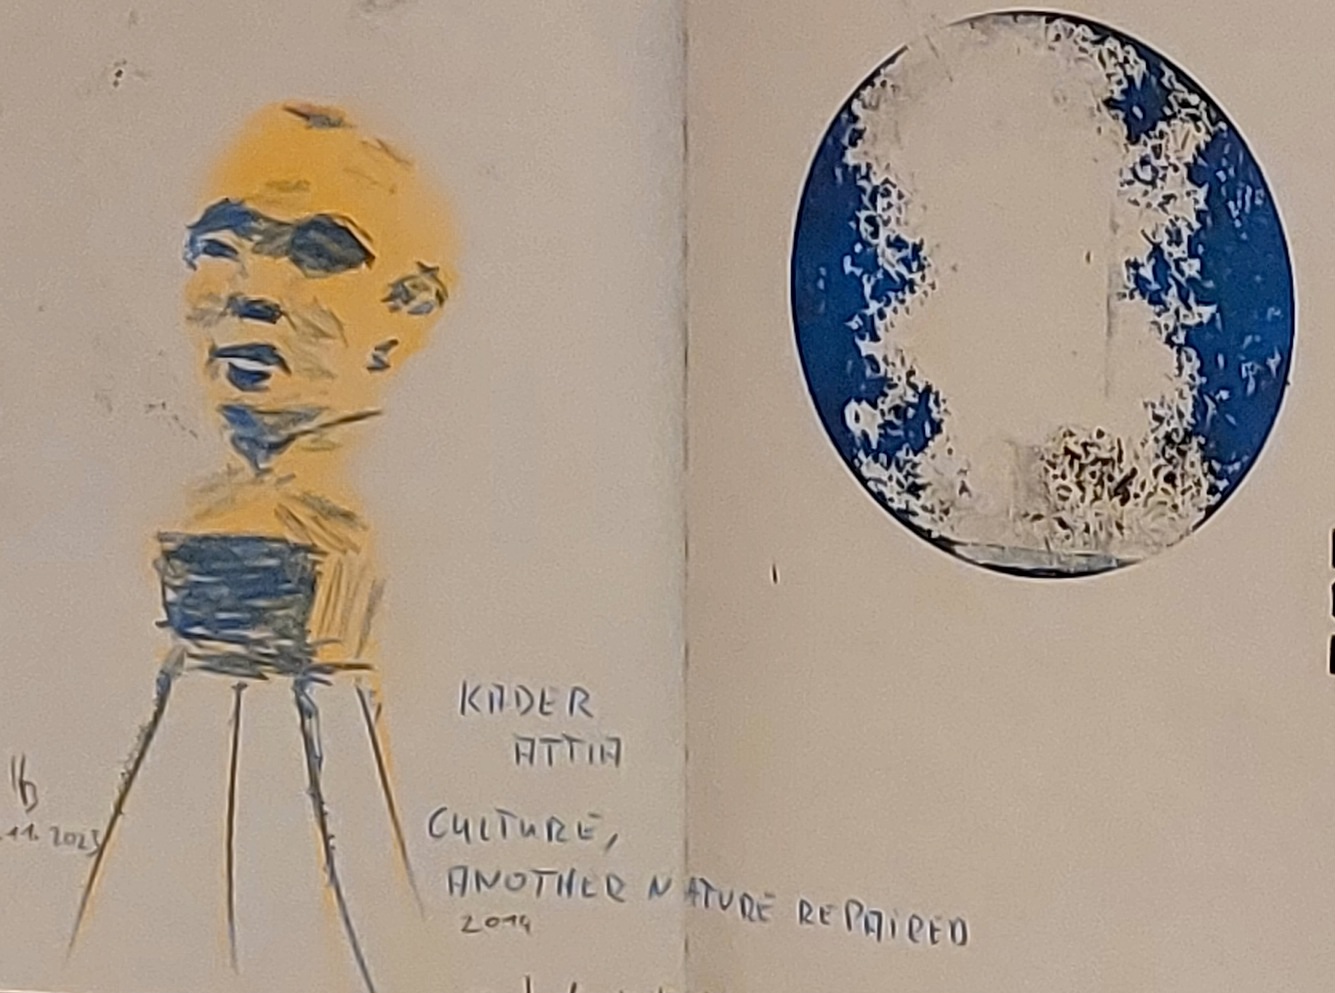 KADER
ATTIA
CULTURE,
ANOTHER NATURE REPAIRED
2014
.11.2023